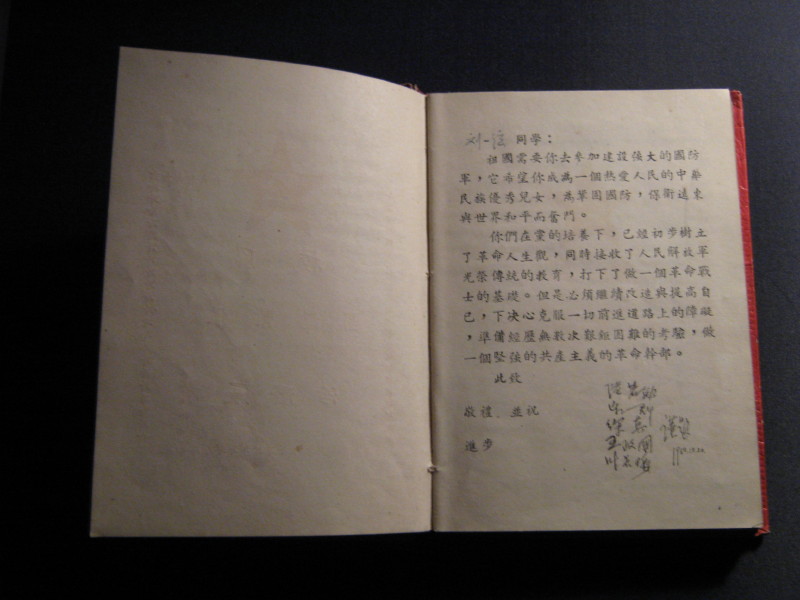 刘一 同學：
祖國需要你去參加建設強大的國防
軍，它希望你成為一個熱愛人民的中華
民族優秀兒女，為鞏固國防，保衛遠東
與世界和平而奮鬥。
你們在黨的培養下，已經初步樹立
了革命人生觀，同時接收了人民解放軍
光榮傳統的教育，打下了做一個革命戰
士的基礎。但是必須繼續改造與提高自
己，下决心克服一切前進道路上的障礙
，準備經歷無數次艱鉅困難的考驗，做
一個堅強的共產主義的革命幹部。
此致
敬禮 並祝
進步